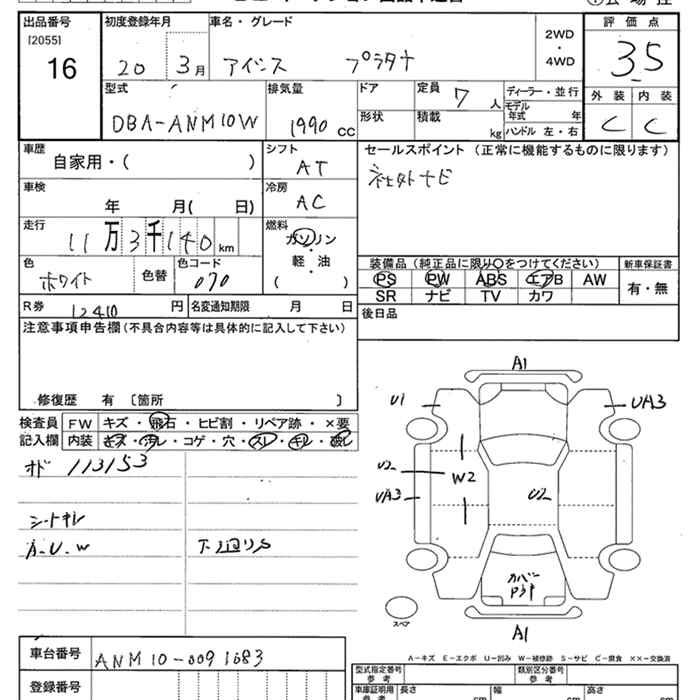 出品番号 初度登録年月 車名・グレード 評価点
[2055]
16
20 3月 アイシス プラタナ
2WD
・
4WD
3.5
型式 排気量 ドア 定員 7人 ディーラー・並行
DBA-ANM10W 1990 cc
形状 積載 kg
モデル年式 年
ハンドル 左・右
外装 内装
C C
車歴 自家用・( ) シフト AT
セールスポイント (正常に機能するものに限ります)
社外ナビ
車検 年 月( 日) 冷房 AC
走行 11万3千140km
燃料 ガソリン
・
軽・油
( )
色 ホワイト 色替 色コード 070
装備品 (純正品に限り○をつけてください) 新車保証書
PS PW ABS エアB AW
SR ナビ TV カワ
有・無
R券 12410円 名変通知期限 月 日
後日品
注意事項申告欄(不具合内容等は具体的に記入して下さい)
修復歴 有 〔箇所 〕
検査員記入欄
FW キズ・飛石・ヒビ割・リペア跡・×要
内装 キズ・汚レ・コゲ・穴・スレ・キレ・破レ
オド 113153
シートキレ
A.U.W 下廻りS
A1
U1 UA3
U2 W2
UA3 U2
カバー
A1
スペア
A－キズ E－エクボ U－凹み W－補修跡 S－サビ C－腐食 ××－交換済
車台番号 ANM10-0091683
登録番号
型式指定番号 参考 類別区分番号 参考
車庫証明用 参考 長さ cm 幅 cm 高さ cm